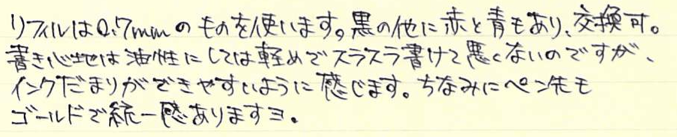 リフィルは0.7mmのものを使います。黒の他に赤と青もあり、交換可。
書き心地は油性にしては軽めでスラスラ書けて悪くないのですが、
インクだまりができやすいように感じます。ちなみにペン先も
ゴールドで統一感ありますヨ。